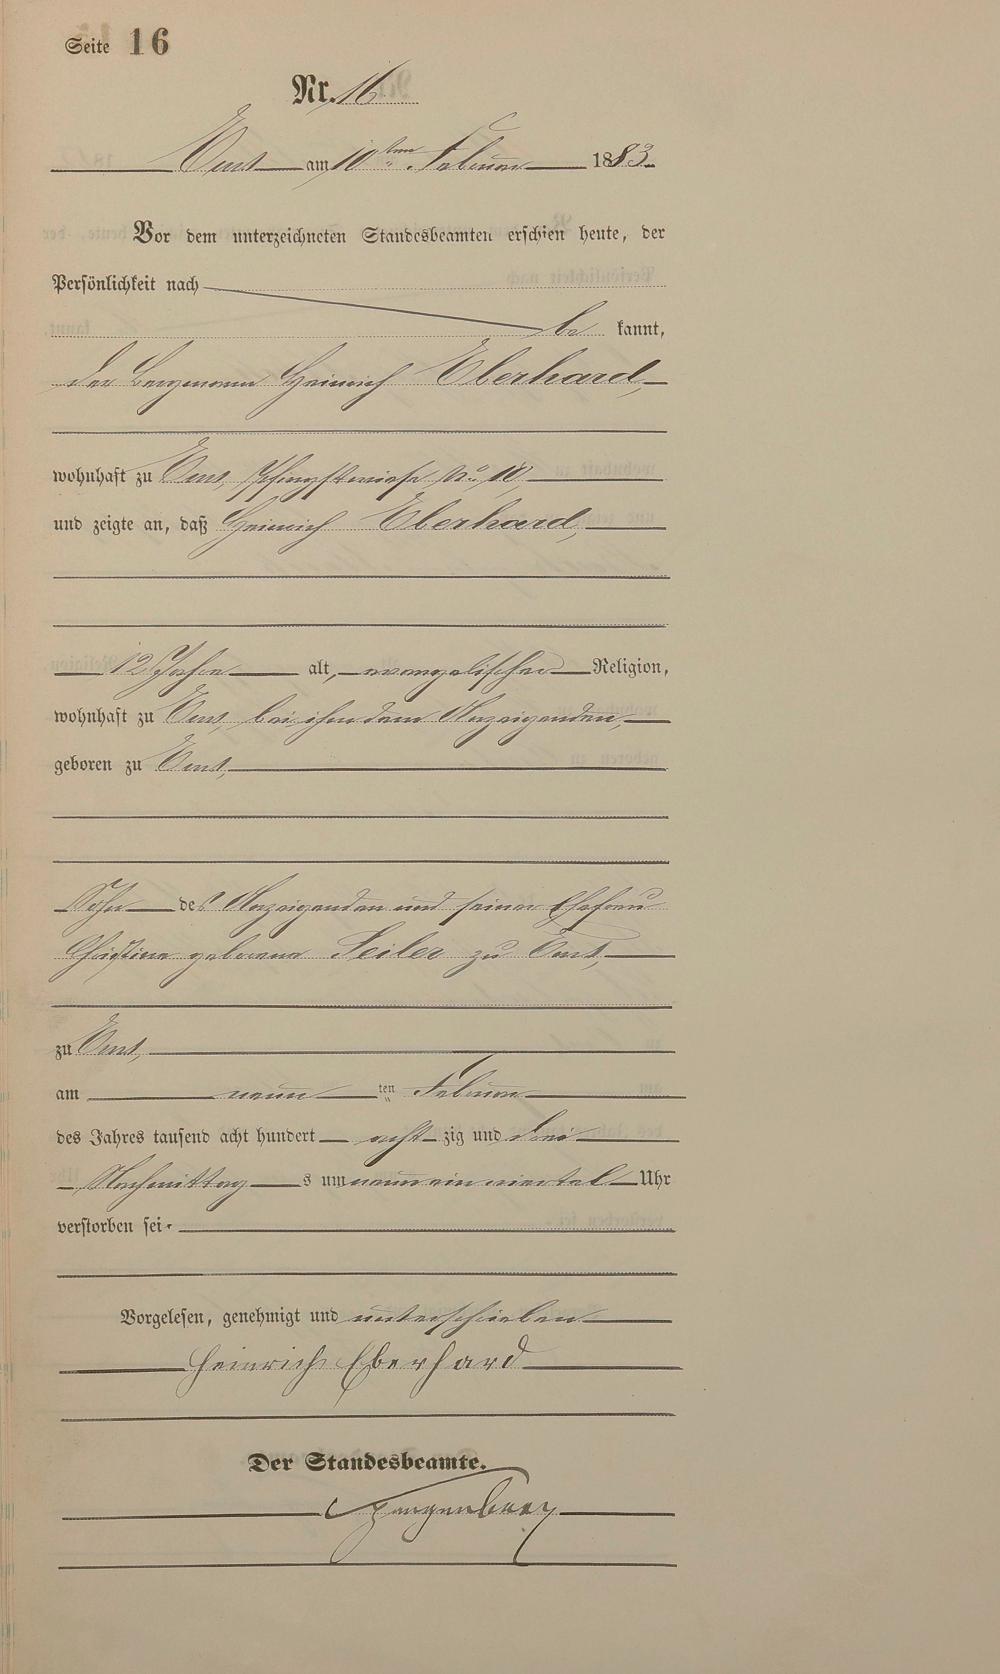 Seite 16
Nr. 16
Ems am 10ten Februar 1883.
Vor dem unterzeichneten Standesbeamten erschien heute, der
Persönlichkeit nach
be kannt,
der Bergmann Heinrich Eberhard,
wohnhaft zu Ems, Pfingstwiese No 10
und zeigte an, daß Heinrich Eberhard,
12 Jahre alt, evangelischer Religion,
wohnhaft zu Ems, bei ihm dem Anzeigenden,
geboren zu Ems,
Sohn des Anzeigenden und seiner Ehefrau
Christine geborene Seiler zu Ems,
zu Ems,
am neun ten Februar
des Jahres tausend acht hundert acht zig und drei
Nachmittag s um neun ein viertel Uhr
verstorben sei.
Vorgelesen, genehmigt und unterschrieben
Heinrich Eberhard
Der Standesbeamte.